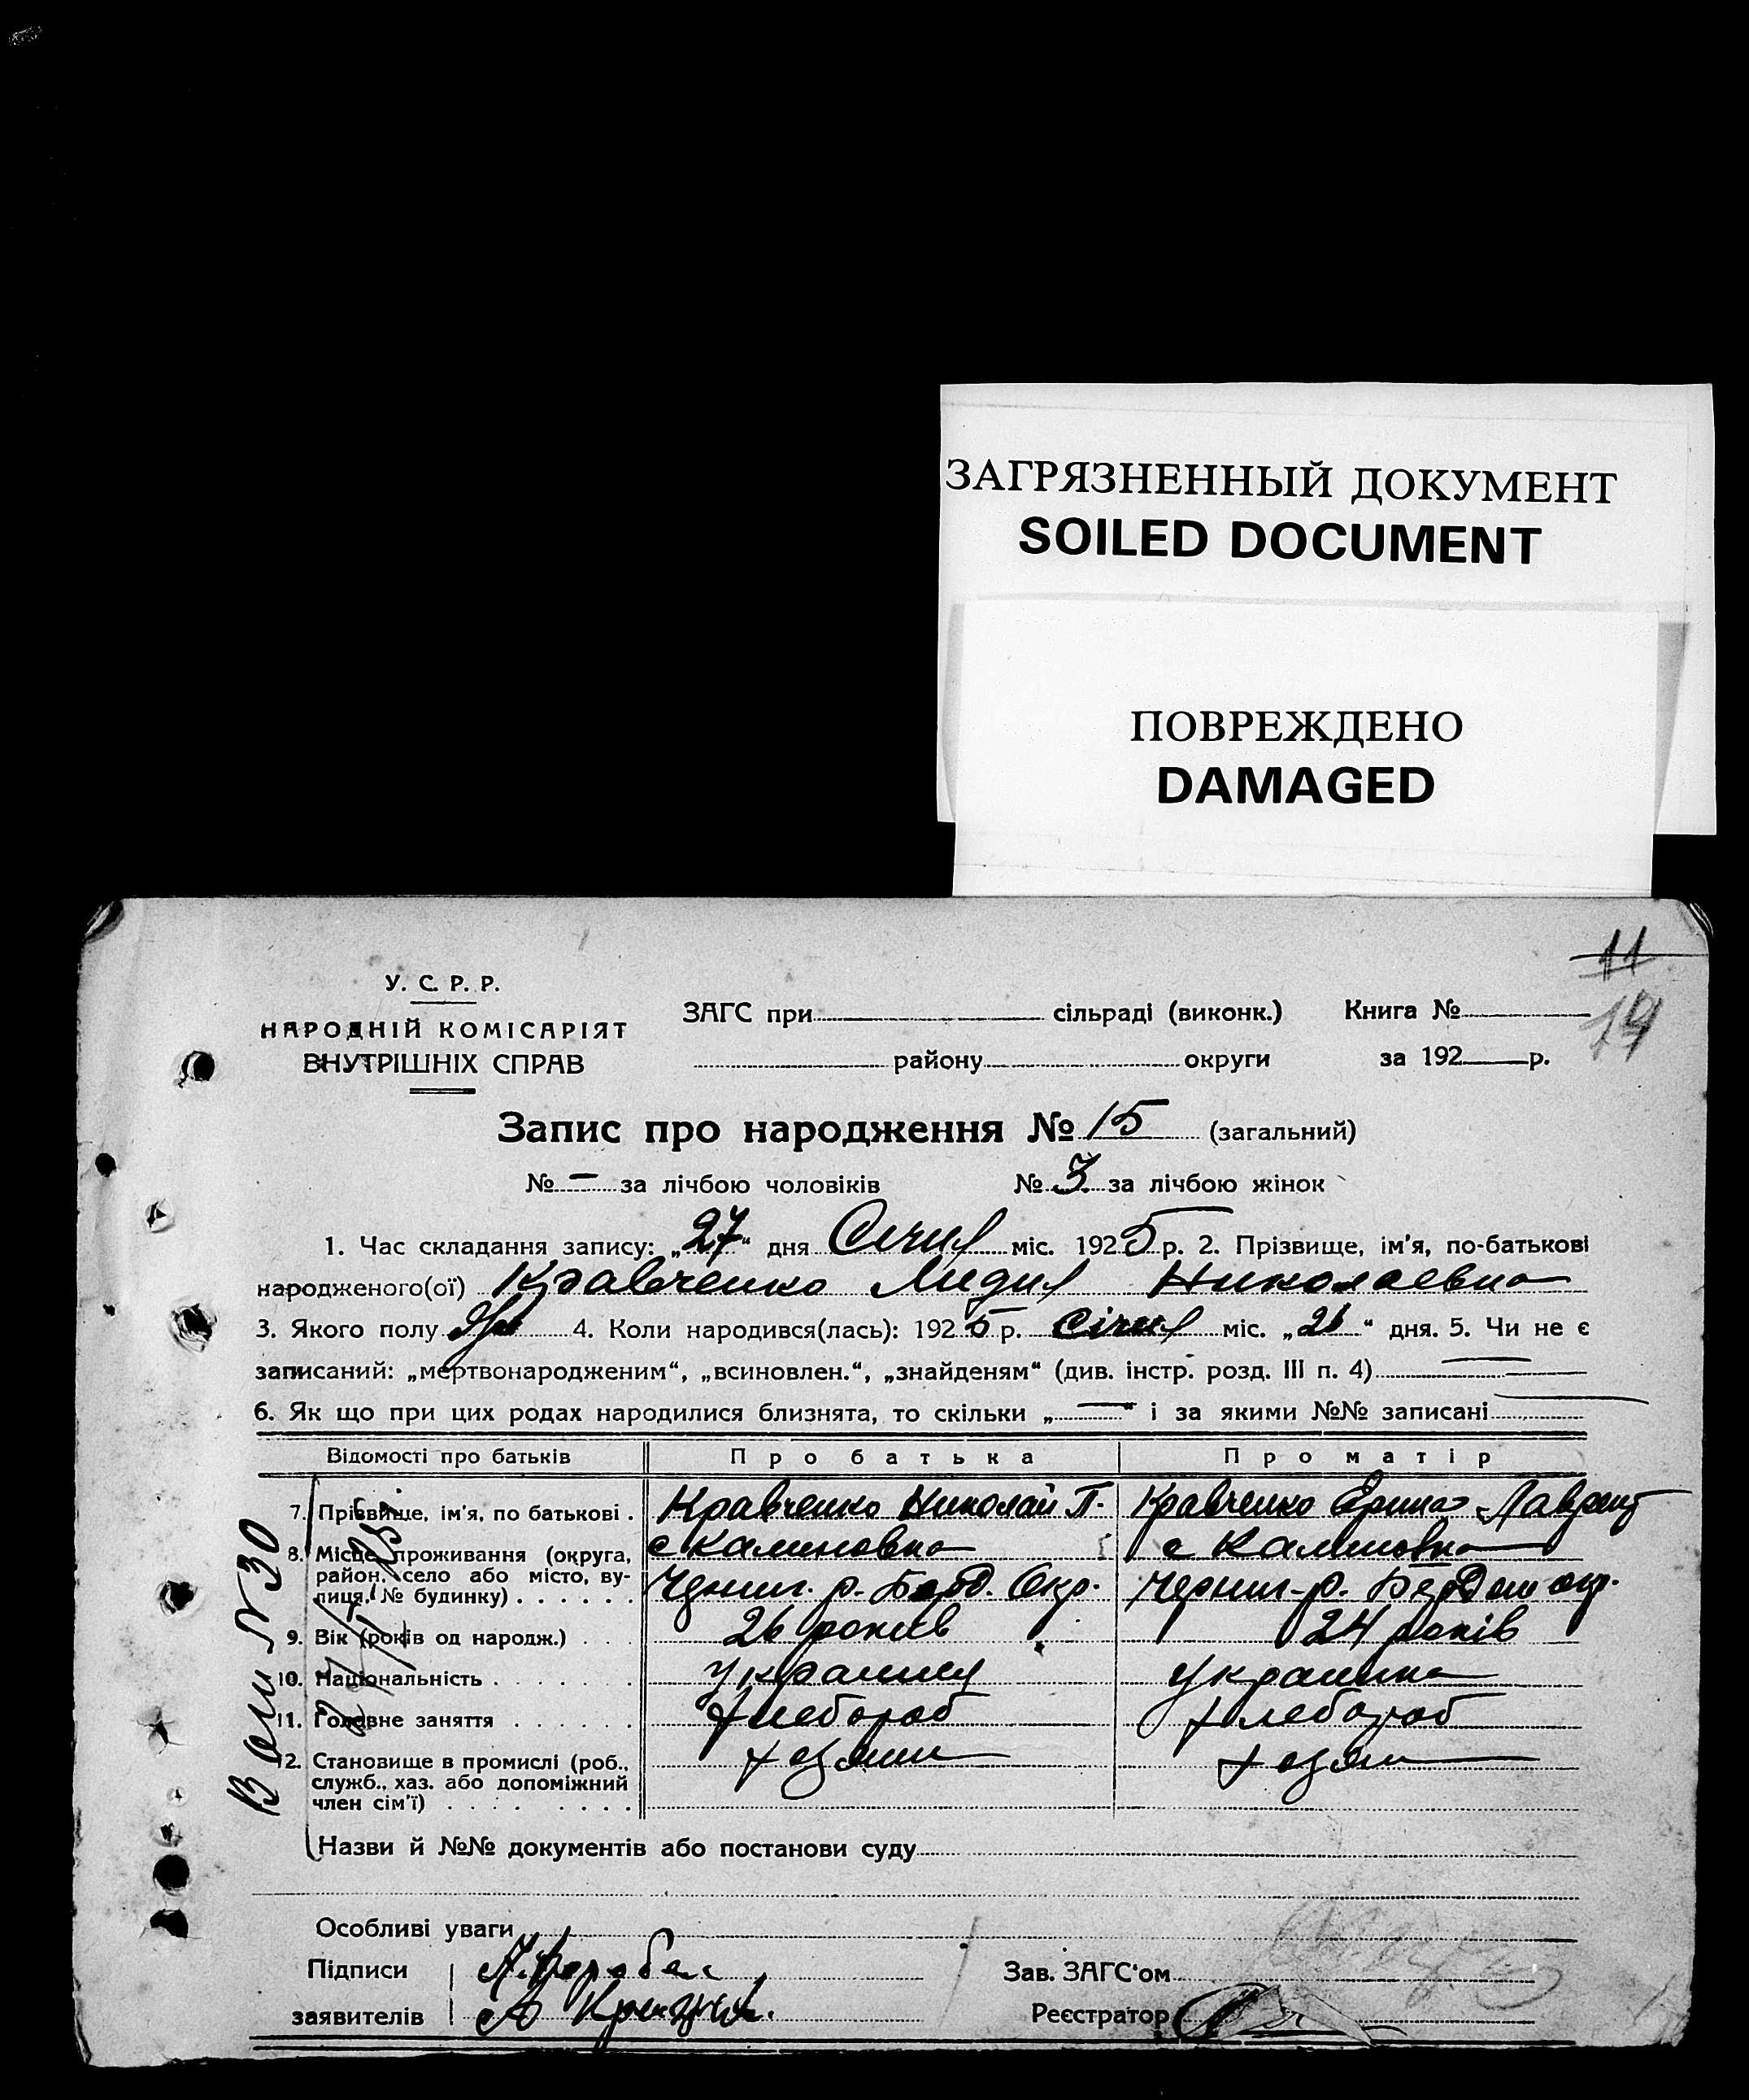 ЗАГРЯЗНЕННЫЙ ДОКУМЕНТ
SOILED DOCUMENT
ПОВРЕЖДЕНО
DAMAGED
11
14
У. С. Р. Р.
НАРОДНІЙ КОМІСАРІЯТ
ВНУТРІШНІХ СПРАВ
ЗАГС при сільраді (виконк.) Книга №
району округи за 192 р.
Запис про народження № 15 (загальний)
№ — за лічбою чоловіків № 3 за лічбою жінок
1. Час складання запису: „27“ дня Січня міс. 1925 р. 2. Прізвище, ім'я, по-батькові
народженого(ої) Кравченко Лидия Николаевна
3. Якого полу 4. Коли народився(лась): 1925 р. Січня міс. „21“ дня. 5. Чи не є
записаний: „мертвонародженим“, „всиновлен.“, „знайденям“ (див. інстр. розд. III п. 4) —
6. Як що при цих родах народилися близнята, то скільки „—“ і за якими №№ записані —
Відомості про батьків Про батька Про матір
7. Прізвище, ім'я, по батькові . Кравченко Николай П. Кравченко Ерина Лаврент
8. Місце проживання (округа, с Калиновка с Калиновка
район, село або місто, ву-
лиця, № будинку) . . . . . . Черниг. р. Берд. Окр. Черниг-р. Бердян окр.
9. Вік (років од народж.) . . . 26 років 24 років
10. Національність . . . . . . . Украинец Украинка
11. Головне заняття . . . . . . Хлебороб Хлебороб
12. Становище в промислі (роб., хозяин хозяин
служб., хаз. або допоміжний
член сім'ї) . . . . . . . .
№ 30
Назви й №№ документів або постанови суду
Особливі уваги
Підписи Зав. ЗАГС'ом
заявителів Реєстратор